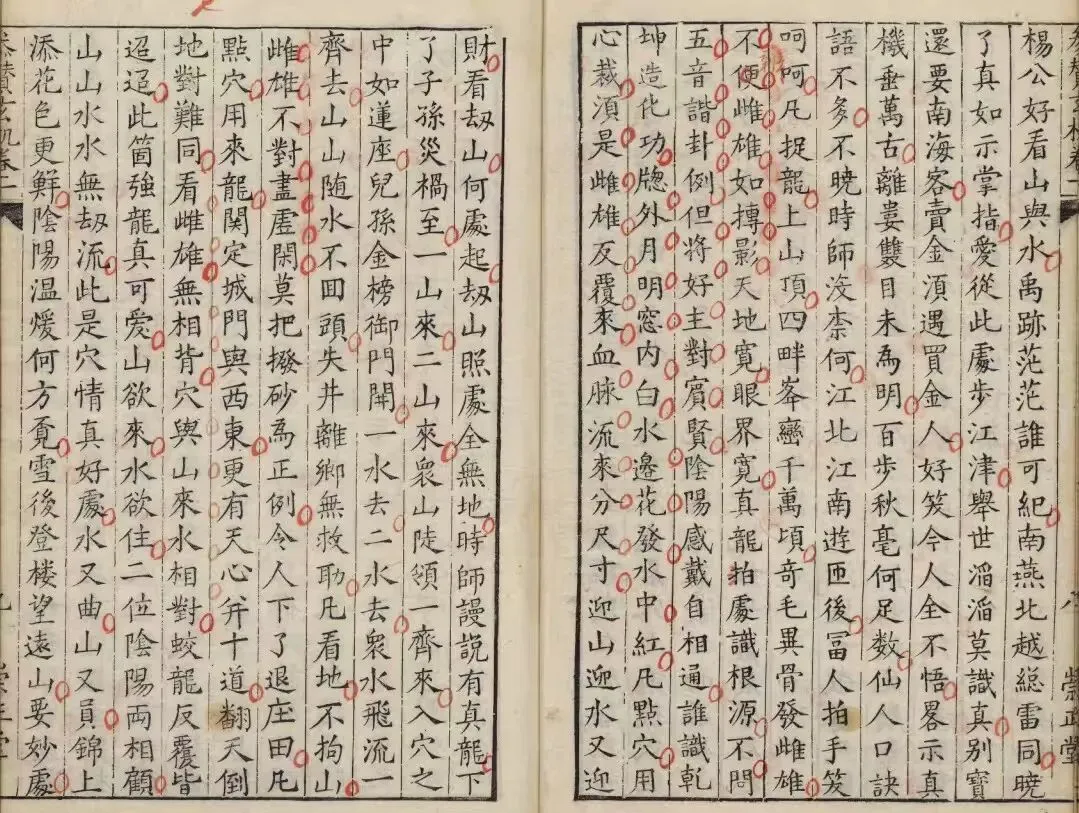 楊公好看山與水禹跡茫茫誰可紀南燕北越総雷同曉
了真如示掌指愛從此處步江津舉世滔滔莫識真别寳
還要南海客賣金湏遇買金人好笑今人全不悟畧示真
機垂萬古離婁雙目未為明百步秋毫何足数仙人口訣
語不多不曉時師没柰何江北江南遊匝後冨人拍手笑
呵呵凡捉龍上山頂四畔峯巒千萬頃奇毛異骨發雌雄
不便雌雄如摶影天地寛眼界寛真龍拍處識根源不問
五音諧卦例但将好主對賔賢陰陽感戴自相通誰識乹
坤造化功牕外月明窓内白水邊花發水中紅凡點穴用
心裁湏是雌雄反覆來血脉流來分尺寸迎山迎水又迎
財看刼山何處起刼山照處全無地時師謾説有真龍下
了子孫災禍至一山來二山來衆山陡領一齊來入穴之
中如蓮座兒孫金榜御門開一水去二水去衆水飛流一
齊去山山随水不囬頭失井離鄉無救助凡看地不拘山
雌雄不對盡虚閑莫把撥砂為正例令人下了退庄田凡
點穴用來龍関定城門與西東更有天心并十道翻天倒
地對難同看雌雄無相背穴與山來水相對蛟龍反覆皆
迢迢此箇強龍真可愛山欲來水欲住二位陰陽兩相顧
山山水水無刼流此是穴情真好處水又曲山又員錦上
添花色更鮮陰陽温煖何方覔雪後登楼望遠山要妙處